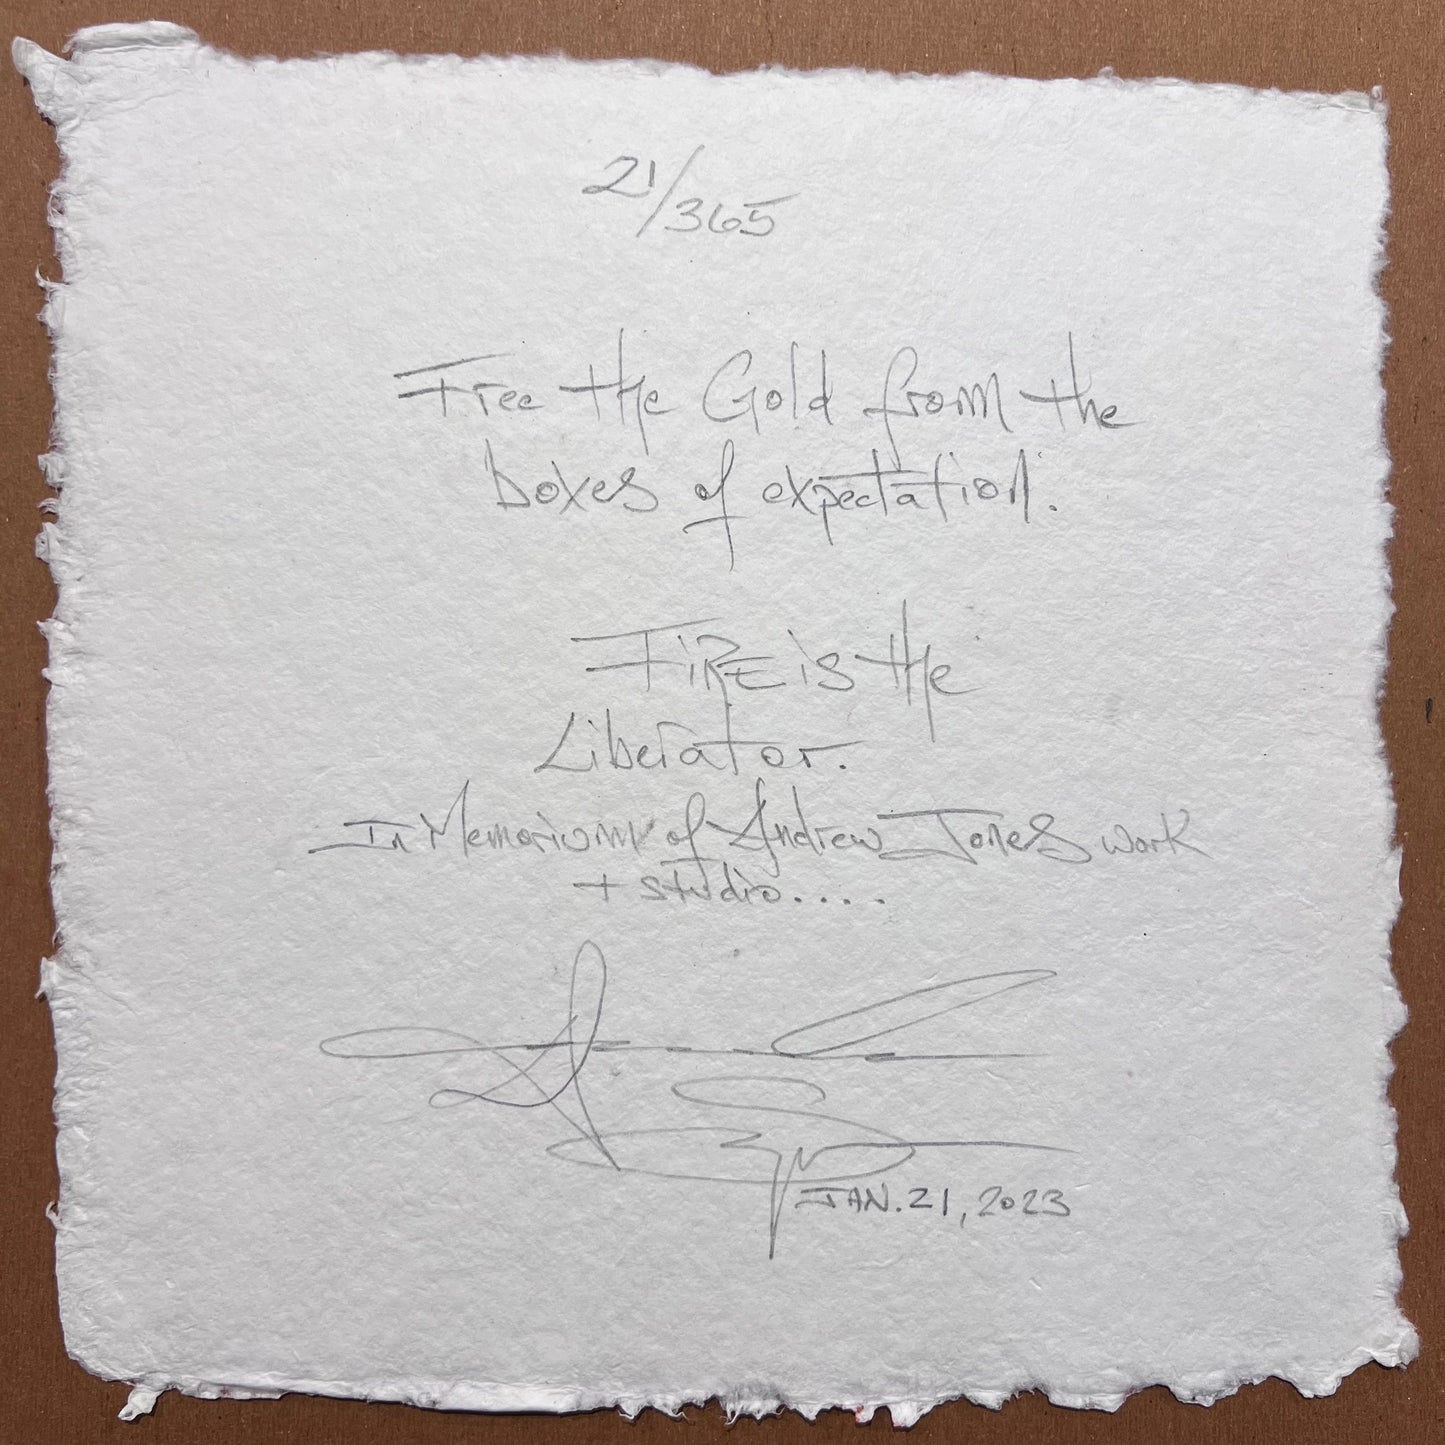 21/365
Free the Gold from the
boxes of expectation.
FiRE is the
Liberator.
In Memorium of Andrew Jones work
+ studio....
JAN. 21, 2023